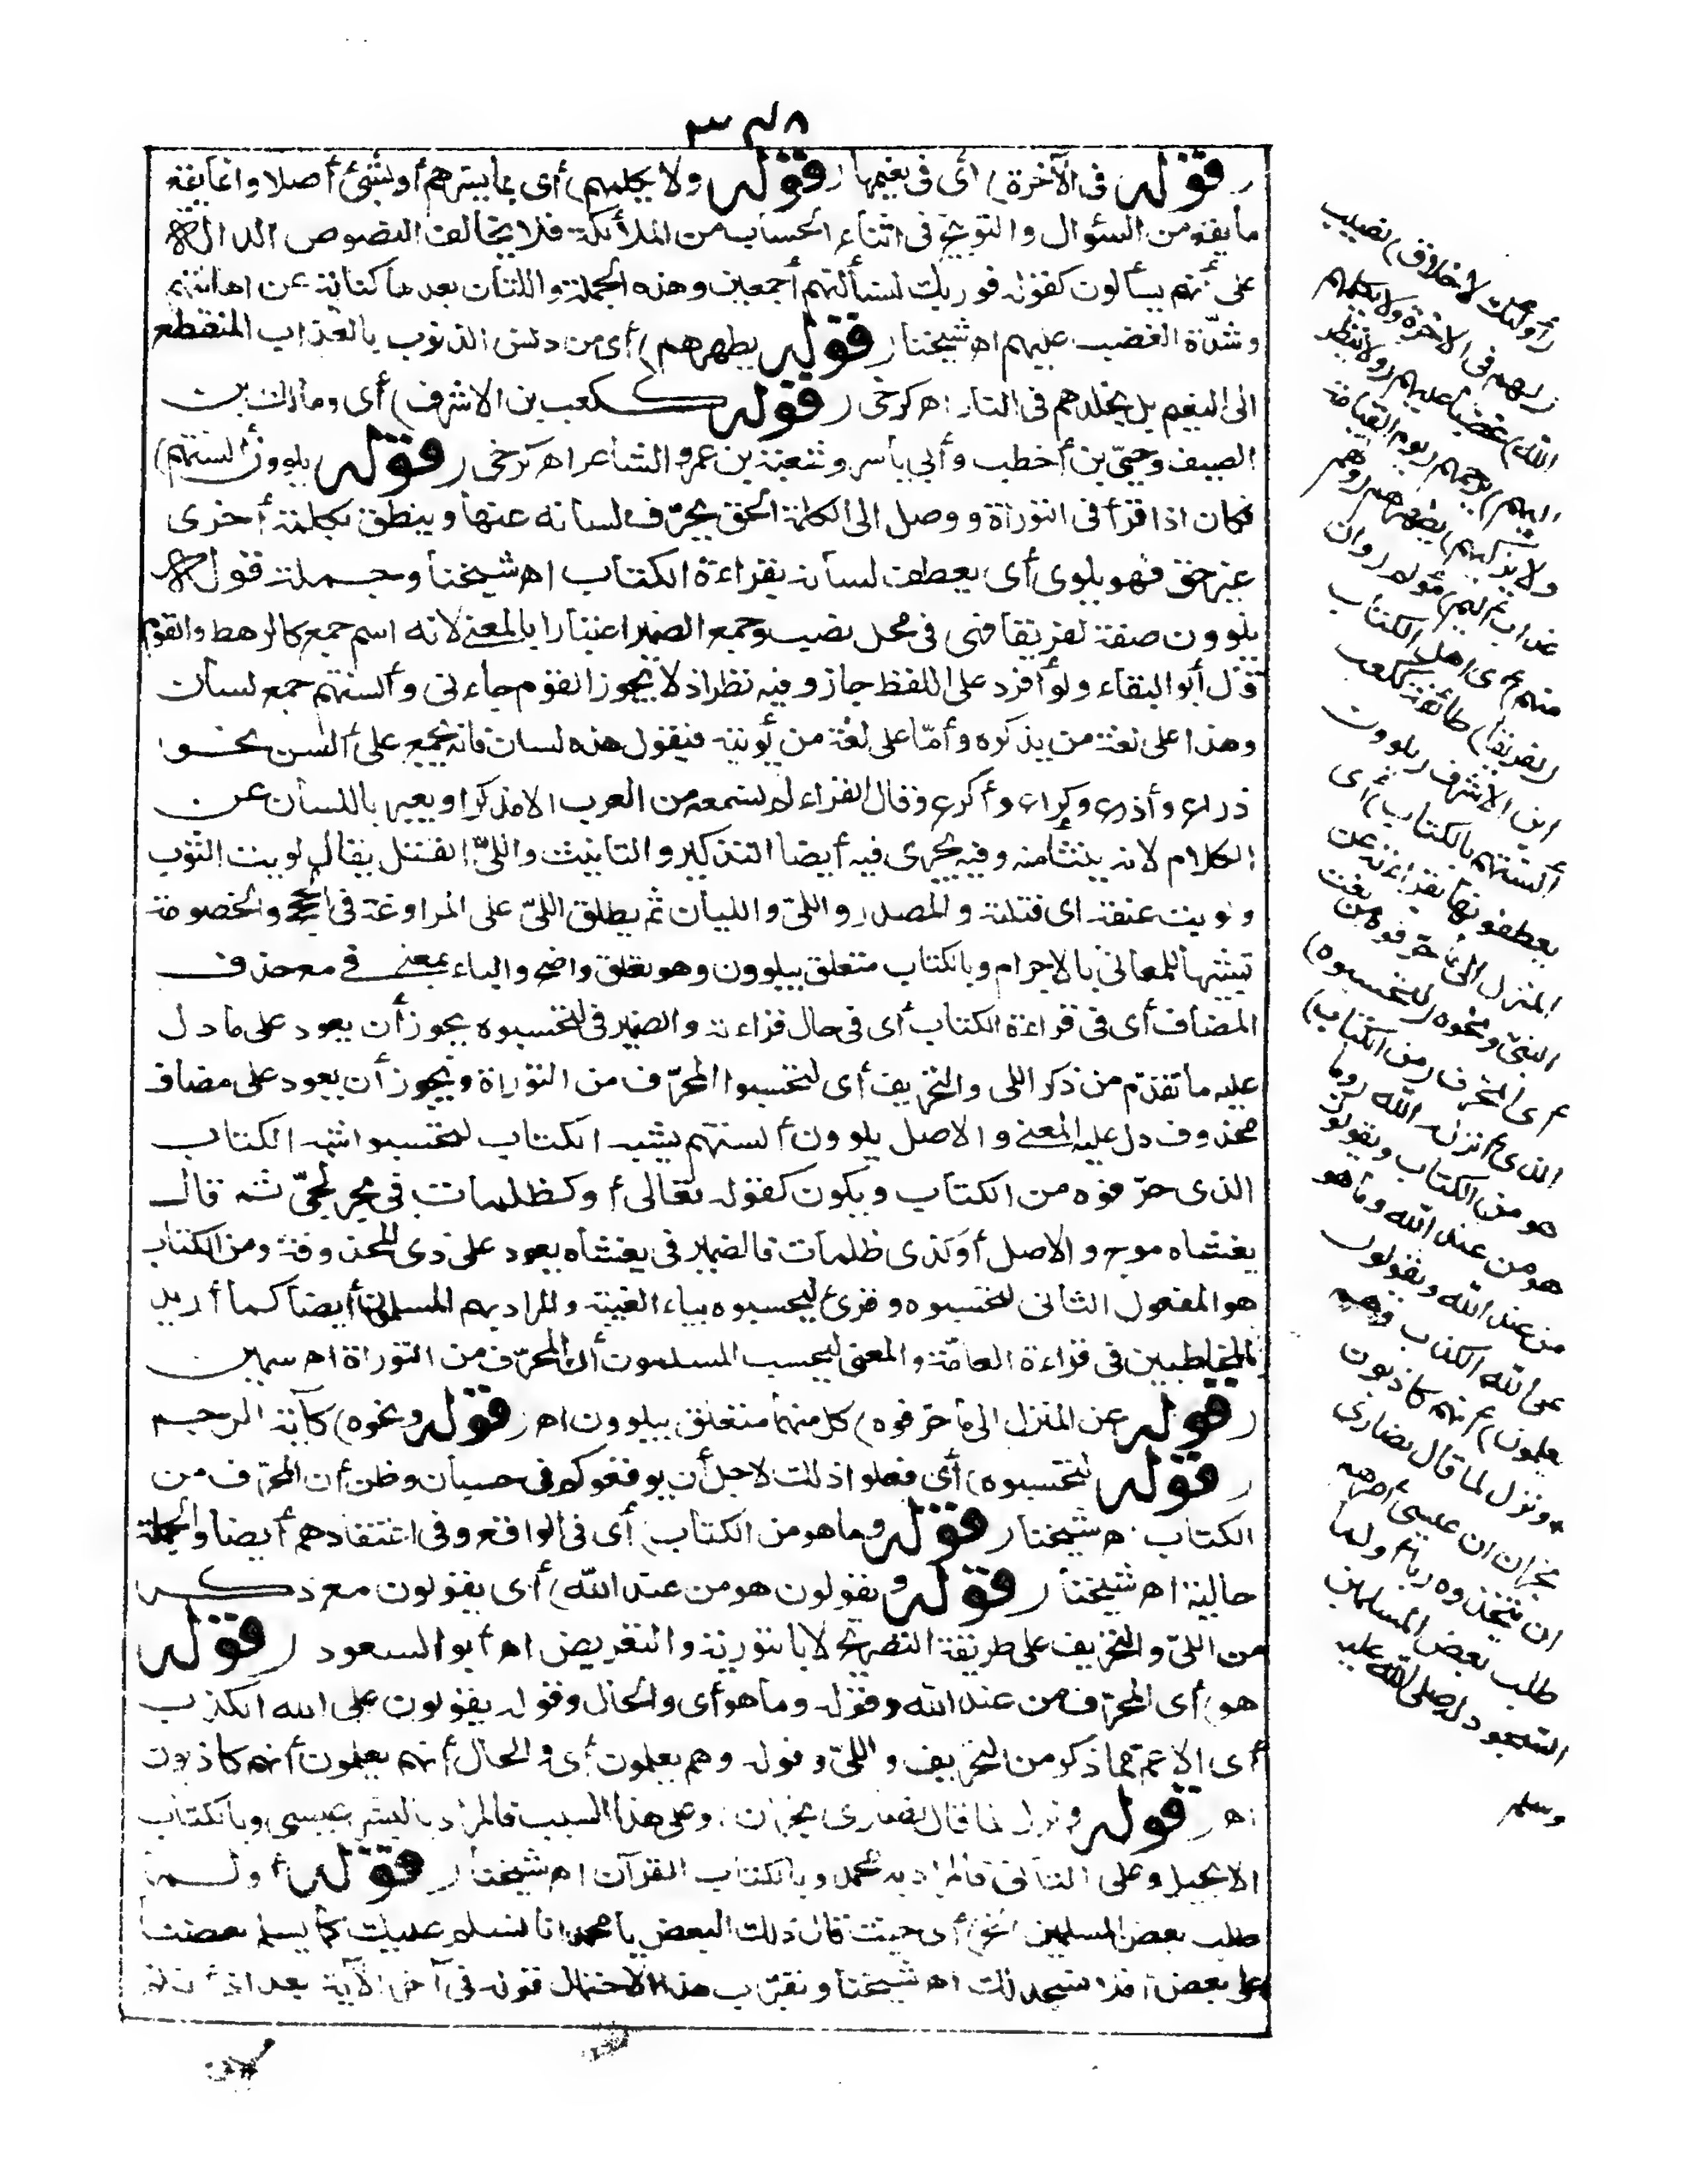 ٣٤٨
(قوله في الآخرة) أى فى نعيمها (قوله ولا يكلمهم) أى بما يسرهم أو بشئ أصلا وانما يقع
ما يقع من السؤال والتوبيخ فى اثناء الحساب من الملائكة فلا يخالف النصوص الدالة
على أنهم يسألون كقوله فوربك لنسألنهم أجمعين وهذه الجملة واللتان بعدها كناية عن اهانتهم
وشدّة الغضب عليهم اه شيخنا (قوله يطهرهم) أى من دنس الذنوب بالعذاب المنقطع
الى النعيم بل يخلدهم فى النار اه كرخى (قوله ككعب بن الاشرف) أى ومالك بن
الصيف وحيىّ بن أخطب وأبى ياسر وشعبة بن عمرو الشاعر اه كرخى (قوله يلوون ألسنتهم)
فكان اذا قرأ فى التوراة ووصل الى الكلمة الحق يحرّف لسانه عنها وينطق بكلمة أخرى
غير حق فهو يلوى أى يعطف لسانه بقراءة الكتاب اه شيخنا وجملة قوله
يلوون صفة لفريقا فهى فى محل نصب وجمع الضمير اعتبارا بالمعنى لانه اسم جمع كالرهط والقوم
قال أبو البقاء ولو أفرد على اللفظ جاز وفيه نظر اذ لا يجوز القوم جاءنى وألسنتهم جمع لسان
وهذا على لغة من يذكره وأمّا على لغة من يؤنثه فيقول هذه لسان فانه يجمع على ألسن نحو
ذراع وأذرع وكراع وأكرع وقال الفراء لم نسمعه من العرب الا مذكرا ويعبر باللسان عن
الكلام لانه ينشأ منه وفيه يجرى فيه أيضا التذكير والتانيث واللىّ الفتل يقال لويت الثوب
ولويت عنقه اى فتلته والمصدر واللىّ والليان ثم يطلق اللىّ على المراوغة فى الحجج والخصومة
تشبيها للمعانى بالاجرام وبالكتاب متعلق بيلوون وهو تعلق واضح والباء بمعنى فى مع حذف
المضاف أى فى قراءة الكتاب أى فى حال قراءته والضمير فى لتحسبوه يجوز أن يعود على ما دل
عليه ما تقدّم من ذكر اللى والتحريف أى لتحسبوا المحرّف من التوراة ويجوز أن يعود على مضاف
محذوف دل عليه المعنى والاصل يلوون ألسنتهم بشبه الكتاب لتحسبوا شبه الكتاب
الذى حرّفوه من الكتاب ويكون كقوله تعالى أو كظلمات فى بحر لجىّ ثم قال
يغشاه موج والاصل أو كذى ظلمات فالضمير فى يغشاه يعود على ذى المحذوفة ومن الكتاب
هو المفعول الثانى لتحسبوه وقرئ ليحسبوه بياء الغيبة والمراد بهم المسلمون أيضا كما أريد
بالمخاطبين فى قراءة العامّة والمعنى ليحسب المسلمون أن المحرّف من التوراة اه سمين
(قوله عن المنزل الى ما حرّفوه) كل منهما متعلق بيلوون اه (قوله ونحوه) كآية الرجم
(قوله لتحسبوه) أى فعلوا ذلك لاجل أن يوقعوكم فى حسبان وظن أن المحرّف من
الكتاب اه شيخنا (قوله وما هو من الكتاب) أى فى الواقع وفى اعتقادهم أيضا والجملة
حالية اه شيخنا (قوله ويقولون هو من عند الله) أى يقولون مع ذكر
من اللىّ والتحريف على طريقة التصريح لا بالتورية والتعريض اه أبو السعود (قوله
هو) أى المحرّف من عند الله وقوله وما هو أى والحال وقوله يقولون على الله الكذب
أى الاعم مما ذكر من التحريف واللىّ وقوله وهم يعلمون أى والحال أنهم يعلمون أنهم كاذبون
اه (قوله ونزل لما قال نصارى نجران) وعلى هذا السبب فالمراد بالبشر عيسى وبالكتاب
الانجيل وعلى الثانى فالمراد به محمد وبالكتاب القرآن اه شيخنا (قوله أو لما
طلب بعض المسلمين الخ) أى حيث قال ذلك البعض يا محمد انا نسلم عليك كما يسلم بعضنا
على بعض أفلا نسجد لك اه شيخنا ويقرّب هذا الاحتمال قوله فى آخر الآية بعد اذ أنتم
(أولئك لاخلاق) نصيب
(لهم فى الاخرة ولا يكلمهم
الله) غضبا عليهم (ولا ينظر
اليهم) يرحمهم (يوم القيامة
ولا يزكيهم) يطهرهم (ولهم
عذاب أليم) مؤلم (وان
منهم) أى اهل الكتاب
(لفريقا) طائفة ككعب
ابن الاشرف (يلوون
ألسنتهم بالكتاب) أى
يعطفونها بقراءته عن
المنزل الى ما حرّفوه من نعت
النبىّ ونحوه (لتحسبوه)
أى المحرّف (من الكتاب)
الذى أنزله الله (وما
هو من الكتاب ويقولون
هو من عند الله وما هو
من عند الله ويقولون
على الله الكذب وهم
يعلمون) أنهم كاذبون
* ونزل لما قال نصارى
نجران ان عيسى أمرهم
ان يتخذوه ربا أو لما
طلب بعض المسلمين
السجود له صلى الله عليه
وسلم